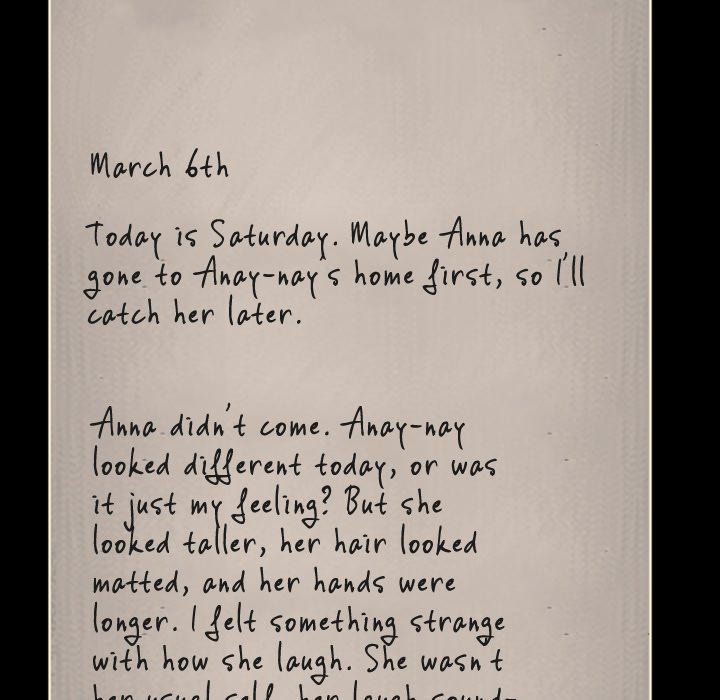 March 6th
Today is Saturday. Maybe Anna has
gone to Anay-nay's home first, so I'll
catch her later.
Anna didn't come. Anay-nay
looked different today, or was
it just my feeling? But she
looked taller, her hair looked
matted, and her hands were
longer. I felt something strange
with how she laugh. She wasn't
her usual self, her laugh sound-